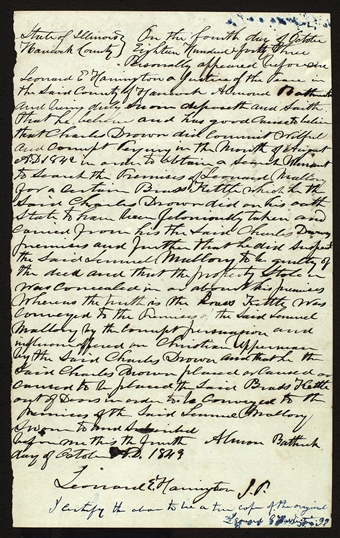 State of Illinois } On the fourth day of October
Hancock County } Eighteen Hundred forty Three
Personally appeared before me
Leonard E Harrington a Justice of the Peace in
the said County of Hancock Almon Bathrick
and being duly sworn deposeth and saith
that he believes and has good cause to believe
that Charles Drown did commit wilful
and corrupt perjury in the Month of August
A.D. 1842 in order to obtain a Search Warrant
to search the Premises of Lemuel Mallory
for a certain Brass Kettle which he the
said Charles Drown did on his oath
State to have been feloniously taken and
carried from his the said Charles Drowns
premises and further that he did suspect
the said Lemuel Mallory to be guilty of
the deed and that the property stolen
was concealed in or about his premises
Whereas the truth is the Brass Kettle was
conveyed to the Premises of the said Lemuel
Mallory by the corrupt persuasion and
influence offered on Christian
by the said Charles Drown and that he the
said Charles Drown placed or caused or
caused to be placed the said Brass Kettle
out of Doors in order to be conveyed to the
premises of the said Lemuel Mallory
Sworn to and Subscribed
before me this the fourth Almon Bathrick
day of October A.D. 1843
Leonard E Harrington J.P.
I certify the above to be a true copy of the original
Leonard E Harrington J.P.